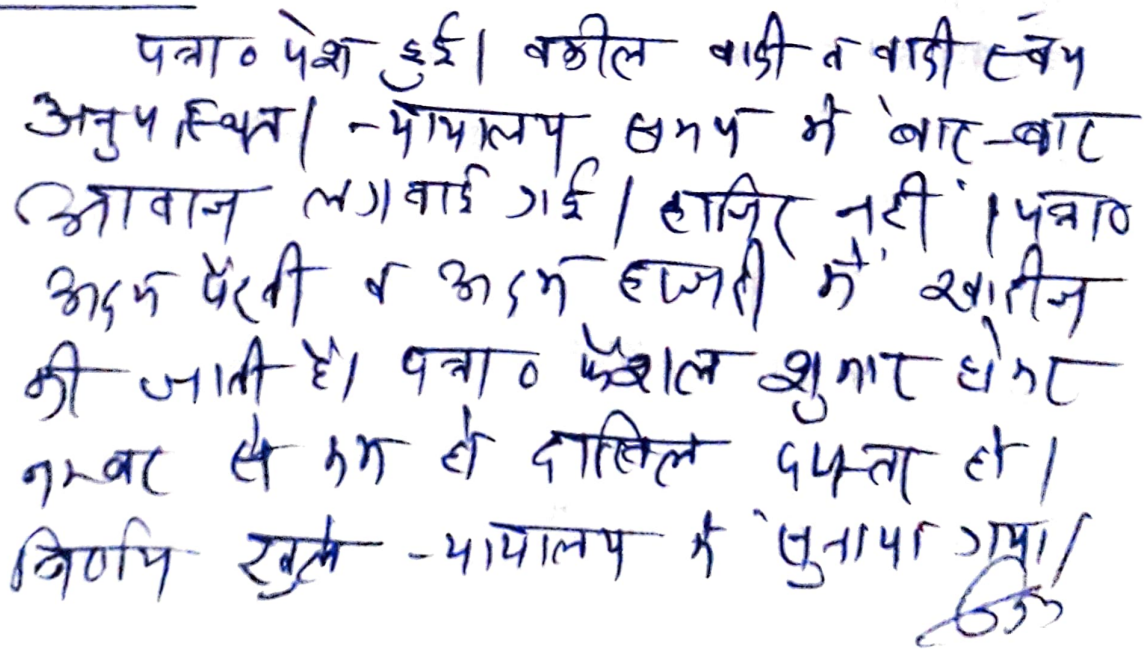 पत्रा० पेश हुई। वकील वादी व वादी स्वंय
अनुपस्थित। न्यायालय समय में बार-बार
आवाज लगवाई गई। हाजिर नहीं। पत्रा०
अदम पैरवी व अदम हाजरी में खारीज
की जाती है। पत्रा० फैशल शुमार होकर
नम्बर से कम हो दाखिल दफ्तर हो।
निर्णय खुले न्यायालय में सुनाया गया।